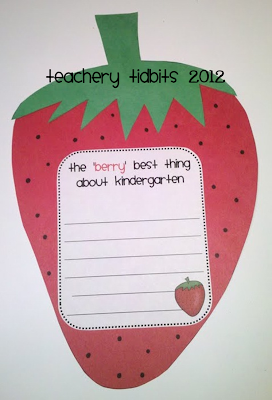 teachery tidbits 2012
the 'berry' best thing
about kindergarten